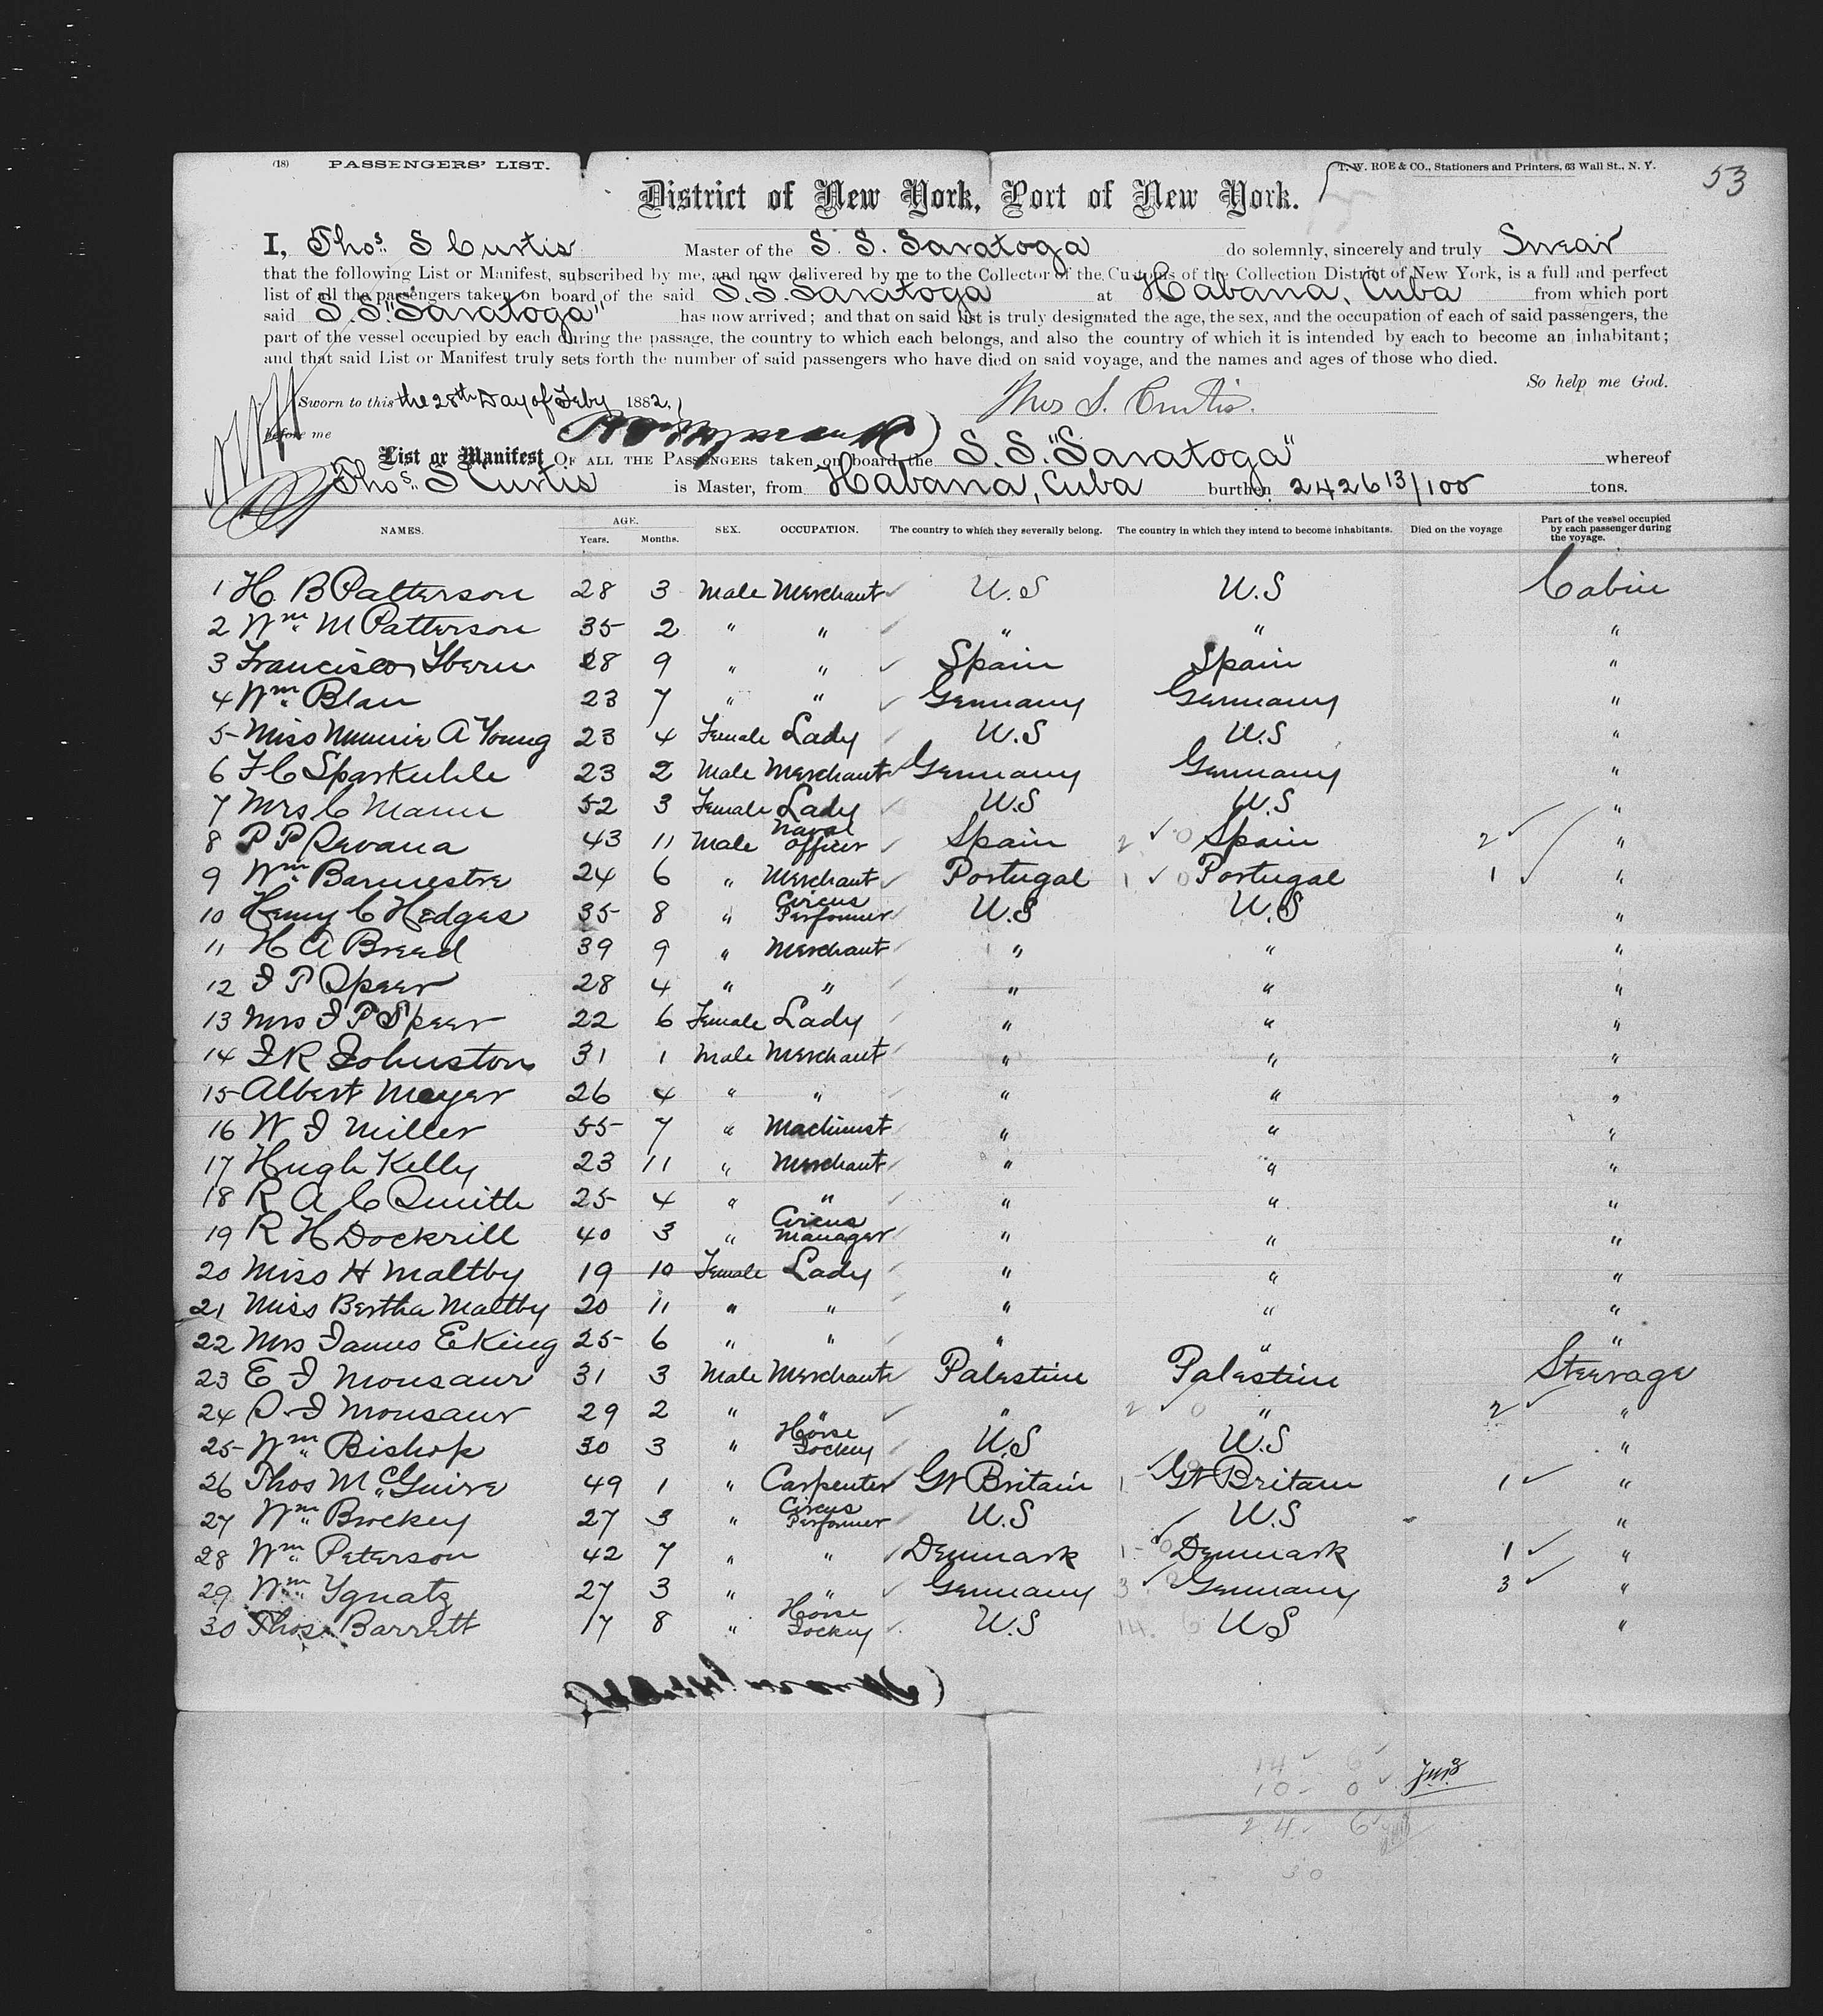 (18) PASSENGERS' LIST. T. W. ROE & CO., Stationers and Printers, 63 Wall St., N. Y. 53
District of New York, Port of New York.
I, Thos. S Curtis Master of the S. S. Saratoga do solemnly, sincerely and truly Swear
that the following List or Manifest, subscribed by me, and now delivered by me to the Collector of the Customs of the Collection District of New York, is a full and perfect
list of all the passengers taken on board of the said S.S. Saratoga at Habana, Cuba from which port
said S.S. "Saratoga" has now arrived; and that on said list is truly designated the age, the sex, and the occupation of each of said passengers, the
part of the vessel occupied by each during the passage, the country to which each belongs, and also the country of which it is intended by each to become an inhabitant;
and that said List or Manifest truly sets forth the number of said passengers who have died on said voyage, and the names and ages of those who died.
So help me God.
Sworn to this the 28th Day of Feby 1882, Thos S. Curtis.
before me
List or Manifest OF ALL THE PASSENGERS taken on board the S.S. "Saratoga" whereof
Thos. S Curtis is Master, from Habana, Cuba burthen 2426 13/100 tons.
NAMES. AGE. Years. Months. SEX. OCCUPATION. The country to which they severally belong. The country in which they intend to become inhabitants. Died on the voyage Part of the vessel occupied by each passenger during the voyage.
1 H B Patterson 28 3 Male Merchant U.S U.S Cabin
2 Wm M Patterson 35 2 " " " " "
3 Francisco Yberu 28 9 " " Spain Spain "
4 Wm Blau 23 7 " " Germany Germany "
5 Miss Minnie A Young 23 4 Female Lady U.S U.S "
6 F C Sparkuhle 23 2 Male Merchant Germany Germany "
7 Mrs C Mann 52 3 Female Lady U.S U.S "
8 P P 43 11 Male Naval Officer Spain 2 Spain 2 "
9 Wm Barmestre 24 6 " Merchant Portugal 1 Portugal 1 "
10 Henry C Hedges 35 8 " Circus Performer U.S U.S "
11 H A Breed 39 9 " Merchant " " "
12 J P Speer 28 4 " " " " "
13 Mrs J P Speer 22 6 Female Lady " " "
14 J R Johnston 31 1 Male Merchant " " "
15 Albert Meyer 26 4 " " " " "
16 W J Miller 55 7 " Machinist " " "
17 Hugh Kelly 23 11 " Merchant " " "
18 R A C Smith 25 4 " " " " "
19 R H Dockrill 40 3 " Circus Manager " " "
20 Miss H Maltby 19 10 Female Lady " " "
21 Miss Bertha Maltby 20 11 " " " " "
22 Mrs James E King 25 6 " " " " "
23 E J Monsaur 31 3 Male Merchant Palestine Palestine Steerage
24 S J Monsaur 29 2 " " " 2 0 " 2 "
25 Wm Bishop 30 3 " Horse Jockey U.S U.S "
26 Thos McGuire 49 1 " Carpenter Gt Britain 1 Gt Britain 1 "
27 Wm Brockey 27 3 " Circus Performer U.S U.S "
28 Wm Peterson 42 7 " " Denmark 1 Denmark 1 "
29 Wm Ygnatz 27 3 " " Germany 3 Germany 3 "
30 Thos. Barrett 17 8 " Horse Jockey U.S 14. 6 U.S "
14 6
10 0
24 6
30